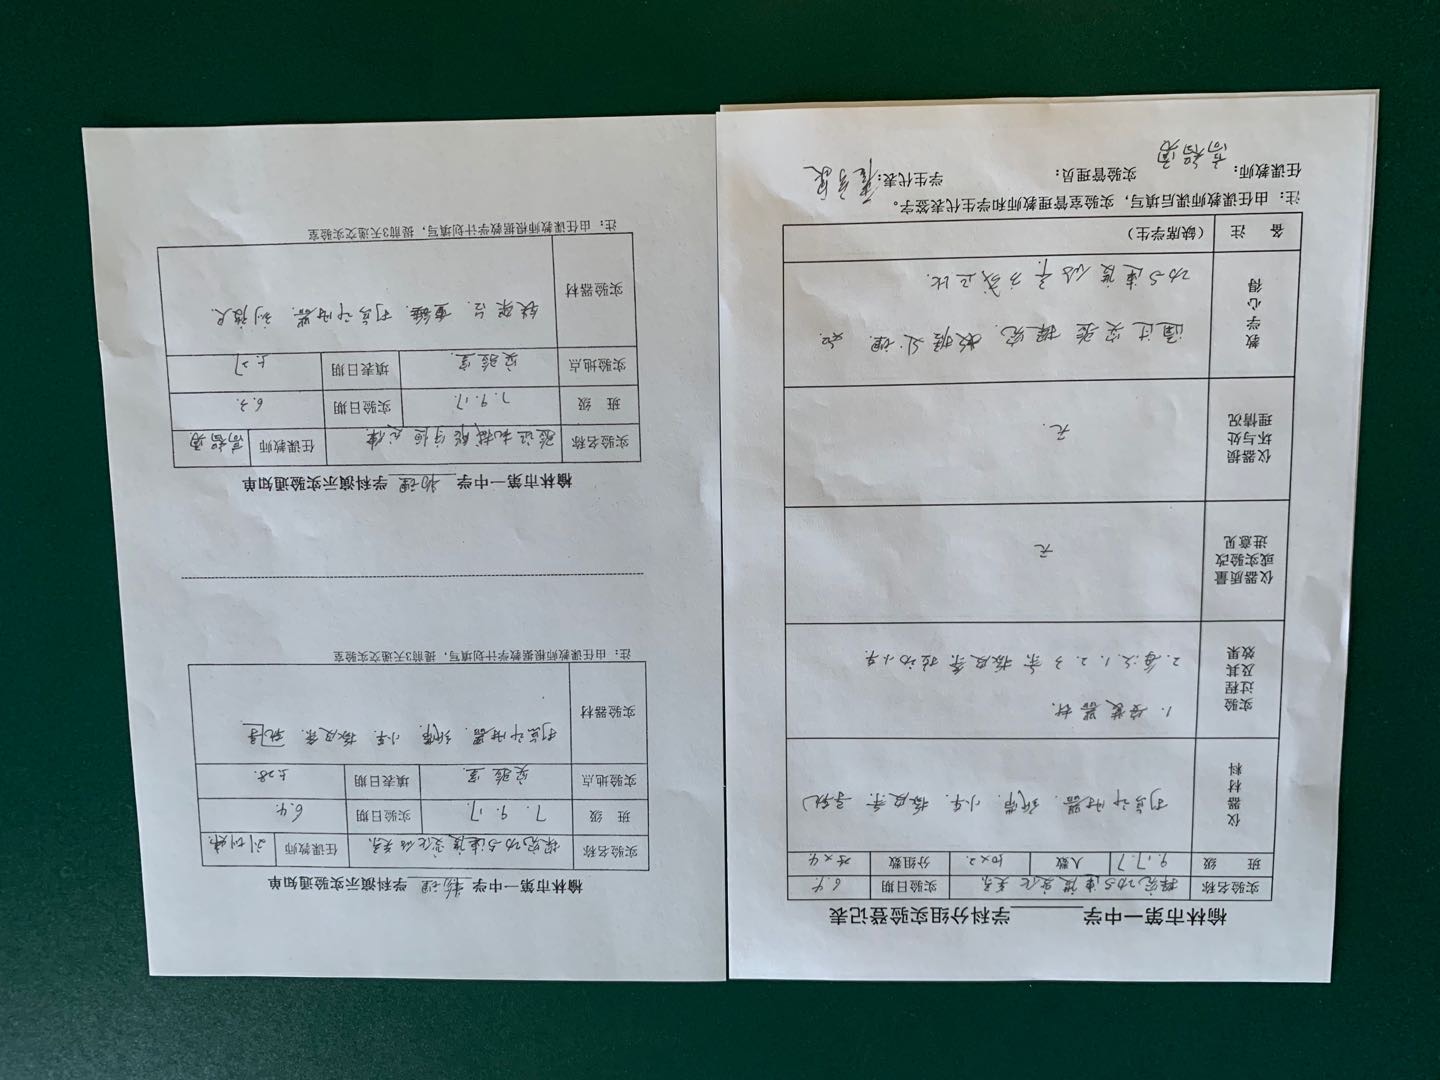 榆林市第一中学______学科分组实验登记表
实验名称 探究功与速度变化关系 实验日期 6.4
班 级 9.17.7 人数 10×2 分组数
仪器材料 打点计时器. 纸带. 小车. 橡皮条. 导轨
实验过程及其效果 1. 安装器材.
2. 每次1.2.3条橡皮条拉动小车.
仪器质量或实验改进意见 无
仪器损坏与处理情况 无.
教学心得 通过实验探究. 数据处理. 知
功与速度的平方成正比.
备 注 (缺席学生)
注：由任课教师课后填写，实验室管理教师和学生代表签字。
任课教师： 高智勇 实验管理员： 学生代表：
榆林市第一中学 物理 学科演示实验通知单
实验名称 探究功与速度变化的关系 任课教师
班 级 7.9.17. 实验日期 6.4
实验地点 实验室 填表日期 5.28.
实验器材 打点计时器. 纸带. 小车. 橡皮条.
注：由任课教师根据教学计划填写，提前3天递交实验室
榆林市第一中学 物理 学科演示实验通知单
实验名称 验证机械能守恒定律 任课教师 高智勇
班 级 7.9.17. 实验日期 6.3.
实验地点 实验室. 填表日期 5.27
实验器材 铁架台. 重锤. 打点计时器. 刻度尺.
注：由任课教师根据教学计划填写，提前3天递交实验室